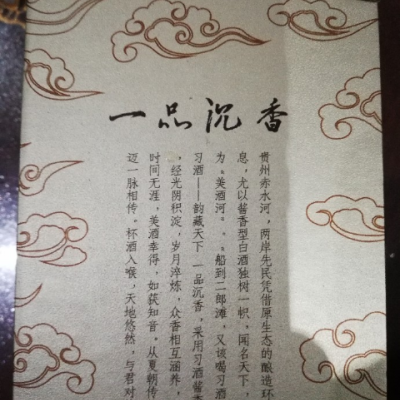 一品沉香
贵州赤水河，两岸先民凭借原生态的酿造环
息，尤以酱香型白酒独树一帜，闻名天下，
为“美酒河”。“船到二郎滩，又该喝习酒
习酒——韵藏天下 一品沉香，采用习酒酱香
，经光阴积淀，岁月淬炼，众香相互涵养，
时间无涯，美酒幸得，如获知音。从夏朝传
迈一脉相传。杯酒入喉，天地悠然，与君对